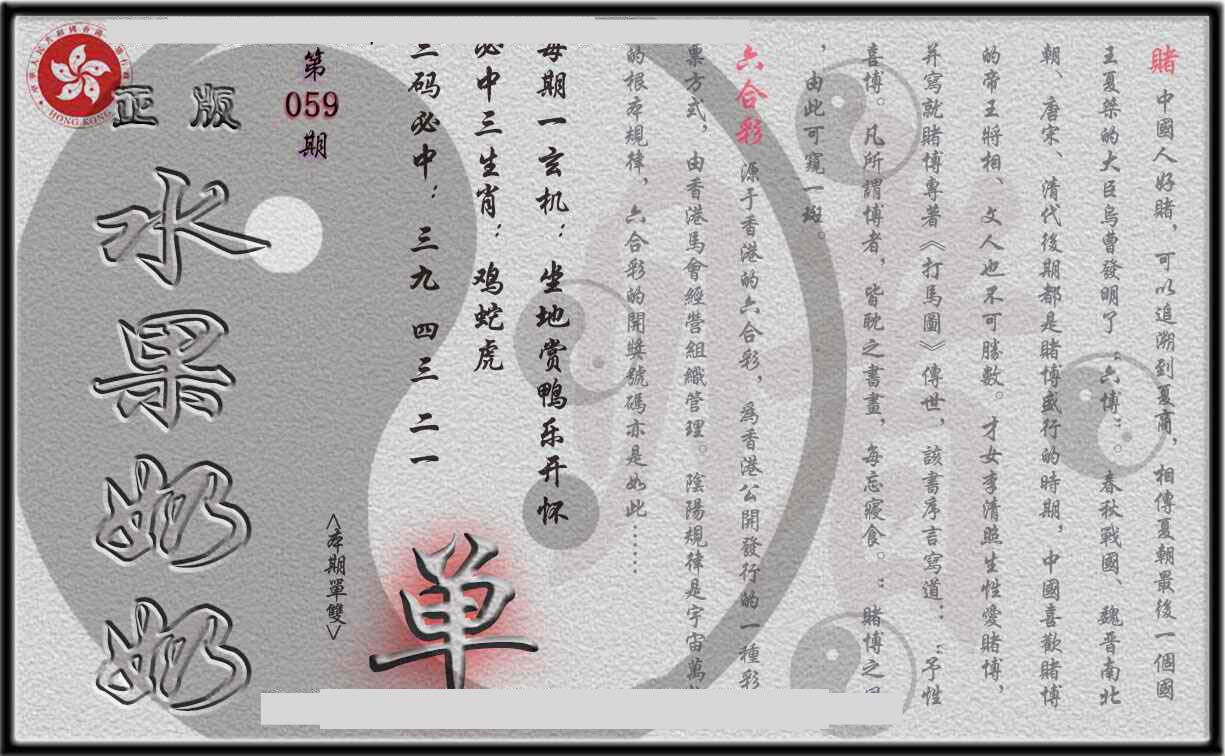 賭 中國人好賭，可以追溯到夏商，相傳夏朝最後一個國
王夏桀的大臣烏曹發明了“六博”。春秋戰國、魏晋南北
朝、唐宋、清代後期都是賭博盛行的時期，中國喜歡賭博
的帝王將相、文人也不可勝數。才女李清照生性愛賭博，
并寫就賭博專著《打馬圖》傳世，該書序言寫道：“予性
喜博。凡所謂博者，皆耽之書畫，每忘寢食。”賭博之風
，由此可窺一斑。
六合彩 源于香港的六合彩，爲香港公開發行的一種彩
票方式，由香港馬會經營組織管理。陰陽規律是宇宙萬物
的根本規律，六合彩的開獎號碼亦是如此……
每期一玄机：坐地赏鸭乐开怀
必中三生肖：鸡蛇虎
三码必中：三九 四三 二一
第
059
期
<本期單雙>
单
正版
水果奶奶
HONG KONG